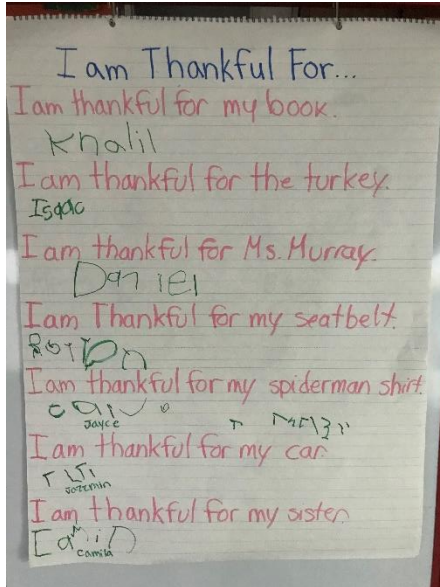 I am Thankful For...
I am thankful for my book.
Khalil
I am thankful for the turkey.
Isaac
I am thankful for Ms. Murray.
Daniel
I am Thankful for my seatbelt.
I am thankful for my spiderman shirt.
Jayce
I am thankful for my car
Jazzmin
I am thankful for my sister.
Camila